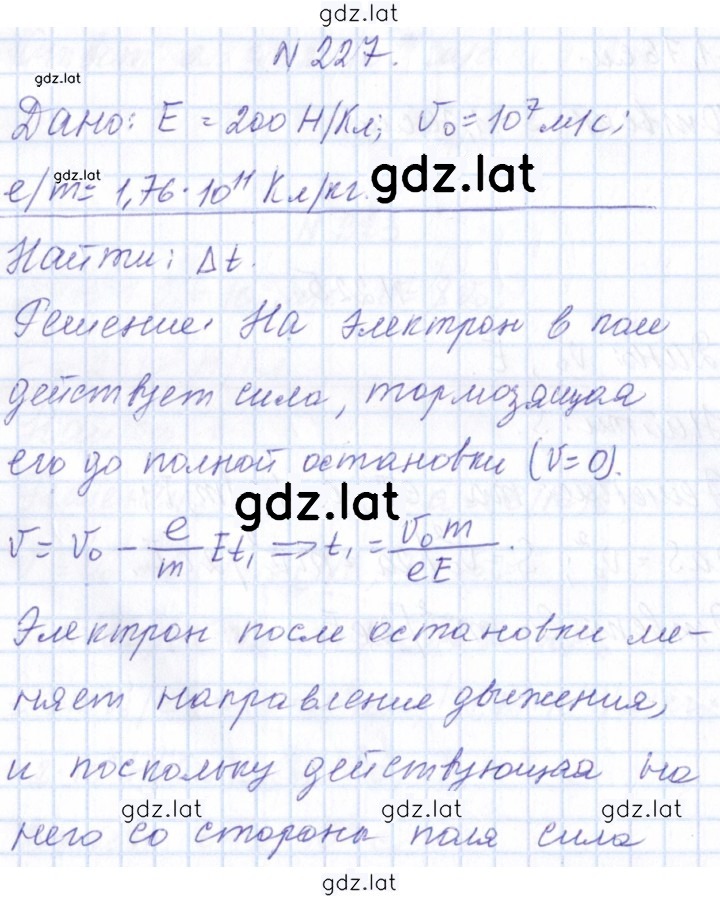 gdz.lat
N 227.
gdz.lat
Дано: E = 200 Н/Кл; v₀ = 10⁷ м/с;
e/m = 1,76 · 10¹¹ Кл/кг.
gdz.lat
gdz.lat
Найти: Δt.
Решение. На электрон в поле
действует сила, тормозящая
его до полной остановки (v=0).
gdz.lat
v = v₀ - e/m Et₁ => t₁ = v₀m/eE.
Электрон после остановки ме-
няет направление движения,
и поскольку действующая на
gdz.lat gdz.lat gdz.lat
него со стороны поля сила
gdz.lat